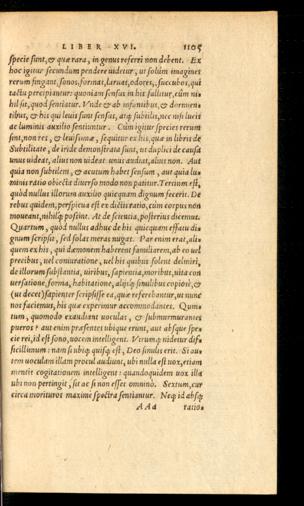 LIBER XVI. 1105
specie sunt, & quæ rara, in genus referri non debent. Ex
hoc igitur secundum pendere uidetur, ut solùm imagines
rerum fingant, sonos, formas, laruas, odores, succubos, qui
tactu percipiantur: quoniam sensus in his fallitur, cùm ni=
hil sit, quod sentiatur. Vnde & ab infantibus, & dormien=
tibus, & his qui leuis sunt sensus, atq; subtilis, nec nisi lucis
ac luminis auxilio sentiuntur. Cùm igitur species rerum
sint, non res, & leuissimæ, sequitur ex his, quæ in libris de
Subtilitate, de iride demonstrata sunt, ut duplici de causa
unus uideat, alius non uideat: unus audiat, alius non. Aut
quia non subtilem, & acutum habet sensum, aut quia lu=
minis ratio obiecta diuerso modo non patitur. Tertium est,
quòd nullus illorum auxilio quicquam dignum fecerit. De
rebus quidem, perspicua est ex dictis ratio, cùm corpus non
moueant, nihilq; possint. At de scientia, posterius dicemus.
Quartum, quòd nullus adhuc de his quicquam effatu di=
gnum scripsit, sed solas meras nugas. Par enim erat, ali=
quem ex his, qui dæmonem haberent familiarem, ab eo uel
precibus, uel coniuratione, uel his quibus solent deliniri,
de illorum substantia, uiribus, sapientia, moribus, uita con
uersatione, forma, habitatione, alijsq; similibus copiosè, &
(ut decet) sapienter scripsisse ea, quæ referebantur, ut nunc
nos facimus, his quæ experimur accommodantes. Quin=
tum, quomodo exaudiant uoculas, & submurmurantes
pueros? aut enim præsentes ubique erunt, aut absque spe=
cie rei, id est sono, uocem intelligent. Verumq; uidetur dif=
ficillimum: nam subiq; quisq; est, Deo similis erit. Si au=
tem uoculam illam procul audiunt, ubi nulla est uox, etiam
mentis cogitationem intelligent: quandoquidem uox illa
ubi non pertingit, sit ac si non esset omnino. Sextum, cur
circa morituros maximè spectra sentiantur. Neq; id absq;
AAa ratio=